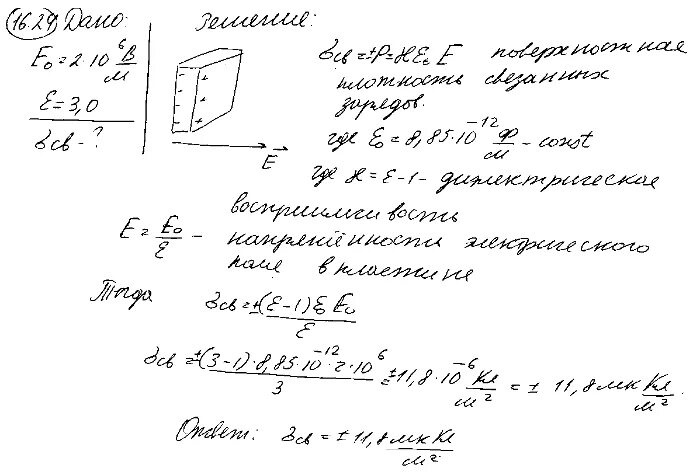 16.29 Дано: Решение:
E₀ = 2·10⁶ В/м
ε = 3,0
σсв - ?
- + - + - + - +
E⃗
σсв = ±P = ϰε₀E поверхностная
плотность связанных
зарядов.
где ε₀ = 8,85·10⁻¹² Ф/м - const
где ϰ = ε-1 - диэлектрическая
восприимчивость
E = E₀/ε - напряжённости электрического
поля в пластине
Тогда σсв = ±(ε-1)ε₀E₀/ε
σсв = ±(3-1)·8,85·10⁻¹²·2·10⁶/3 = ±11,8·10⁻⁶ Кл/м² = ± 11,8 мк Кл/м².
Ответ: σсв = ±11,8 мк Кл/м²